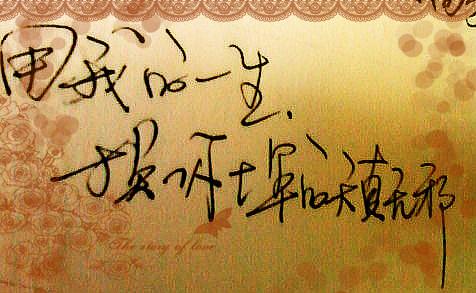 用我的一生.
换你十年的天真无邪
The story of love